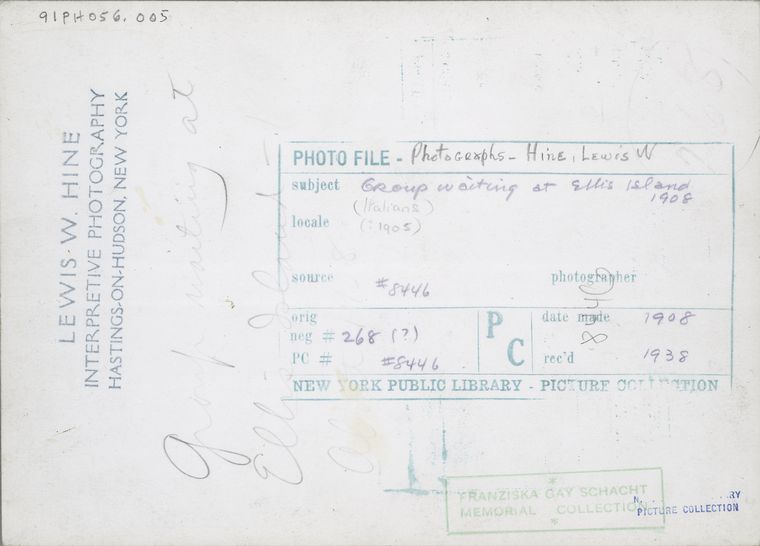 91PH056.005
LEWIS · W. HINE
INTERPRETIVE PHOTOGRAPHY
HASTINGS-ON-HUDSON, NEW YORK
Group waiting at
Ellis Island
PHOTO FILE - Photographs - Hine, Lewis W
subject Group waiting at Ellis Island
1908
(Italians)
locale (:1905)
source #8446 photographer
8446
orig
neg # 268 (?)
PC # #8446
PC
date made 1908
rec'd 1938
NEW YORK PUBLIC LIBRARY - PICTURE COLLECTION
FRANZISKA GAY SCHACHT
MEMORIAL COLLECTION
PICTURE COLLECTION